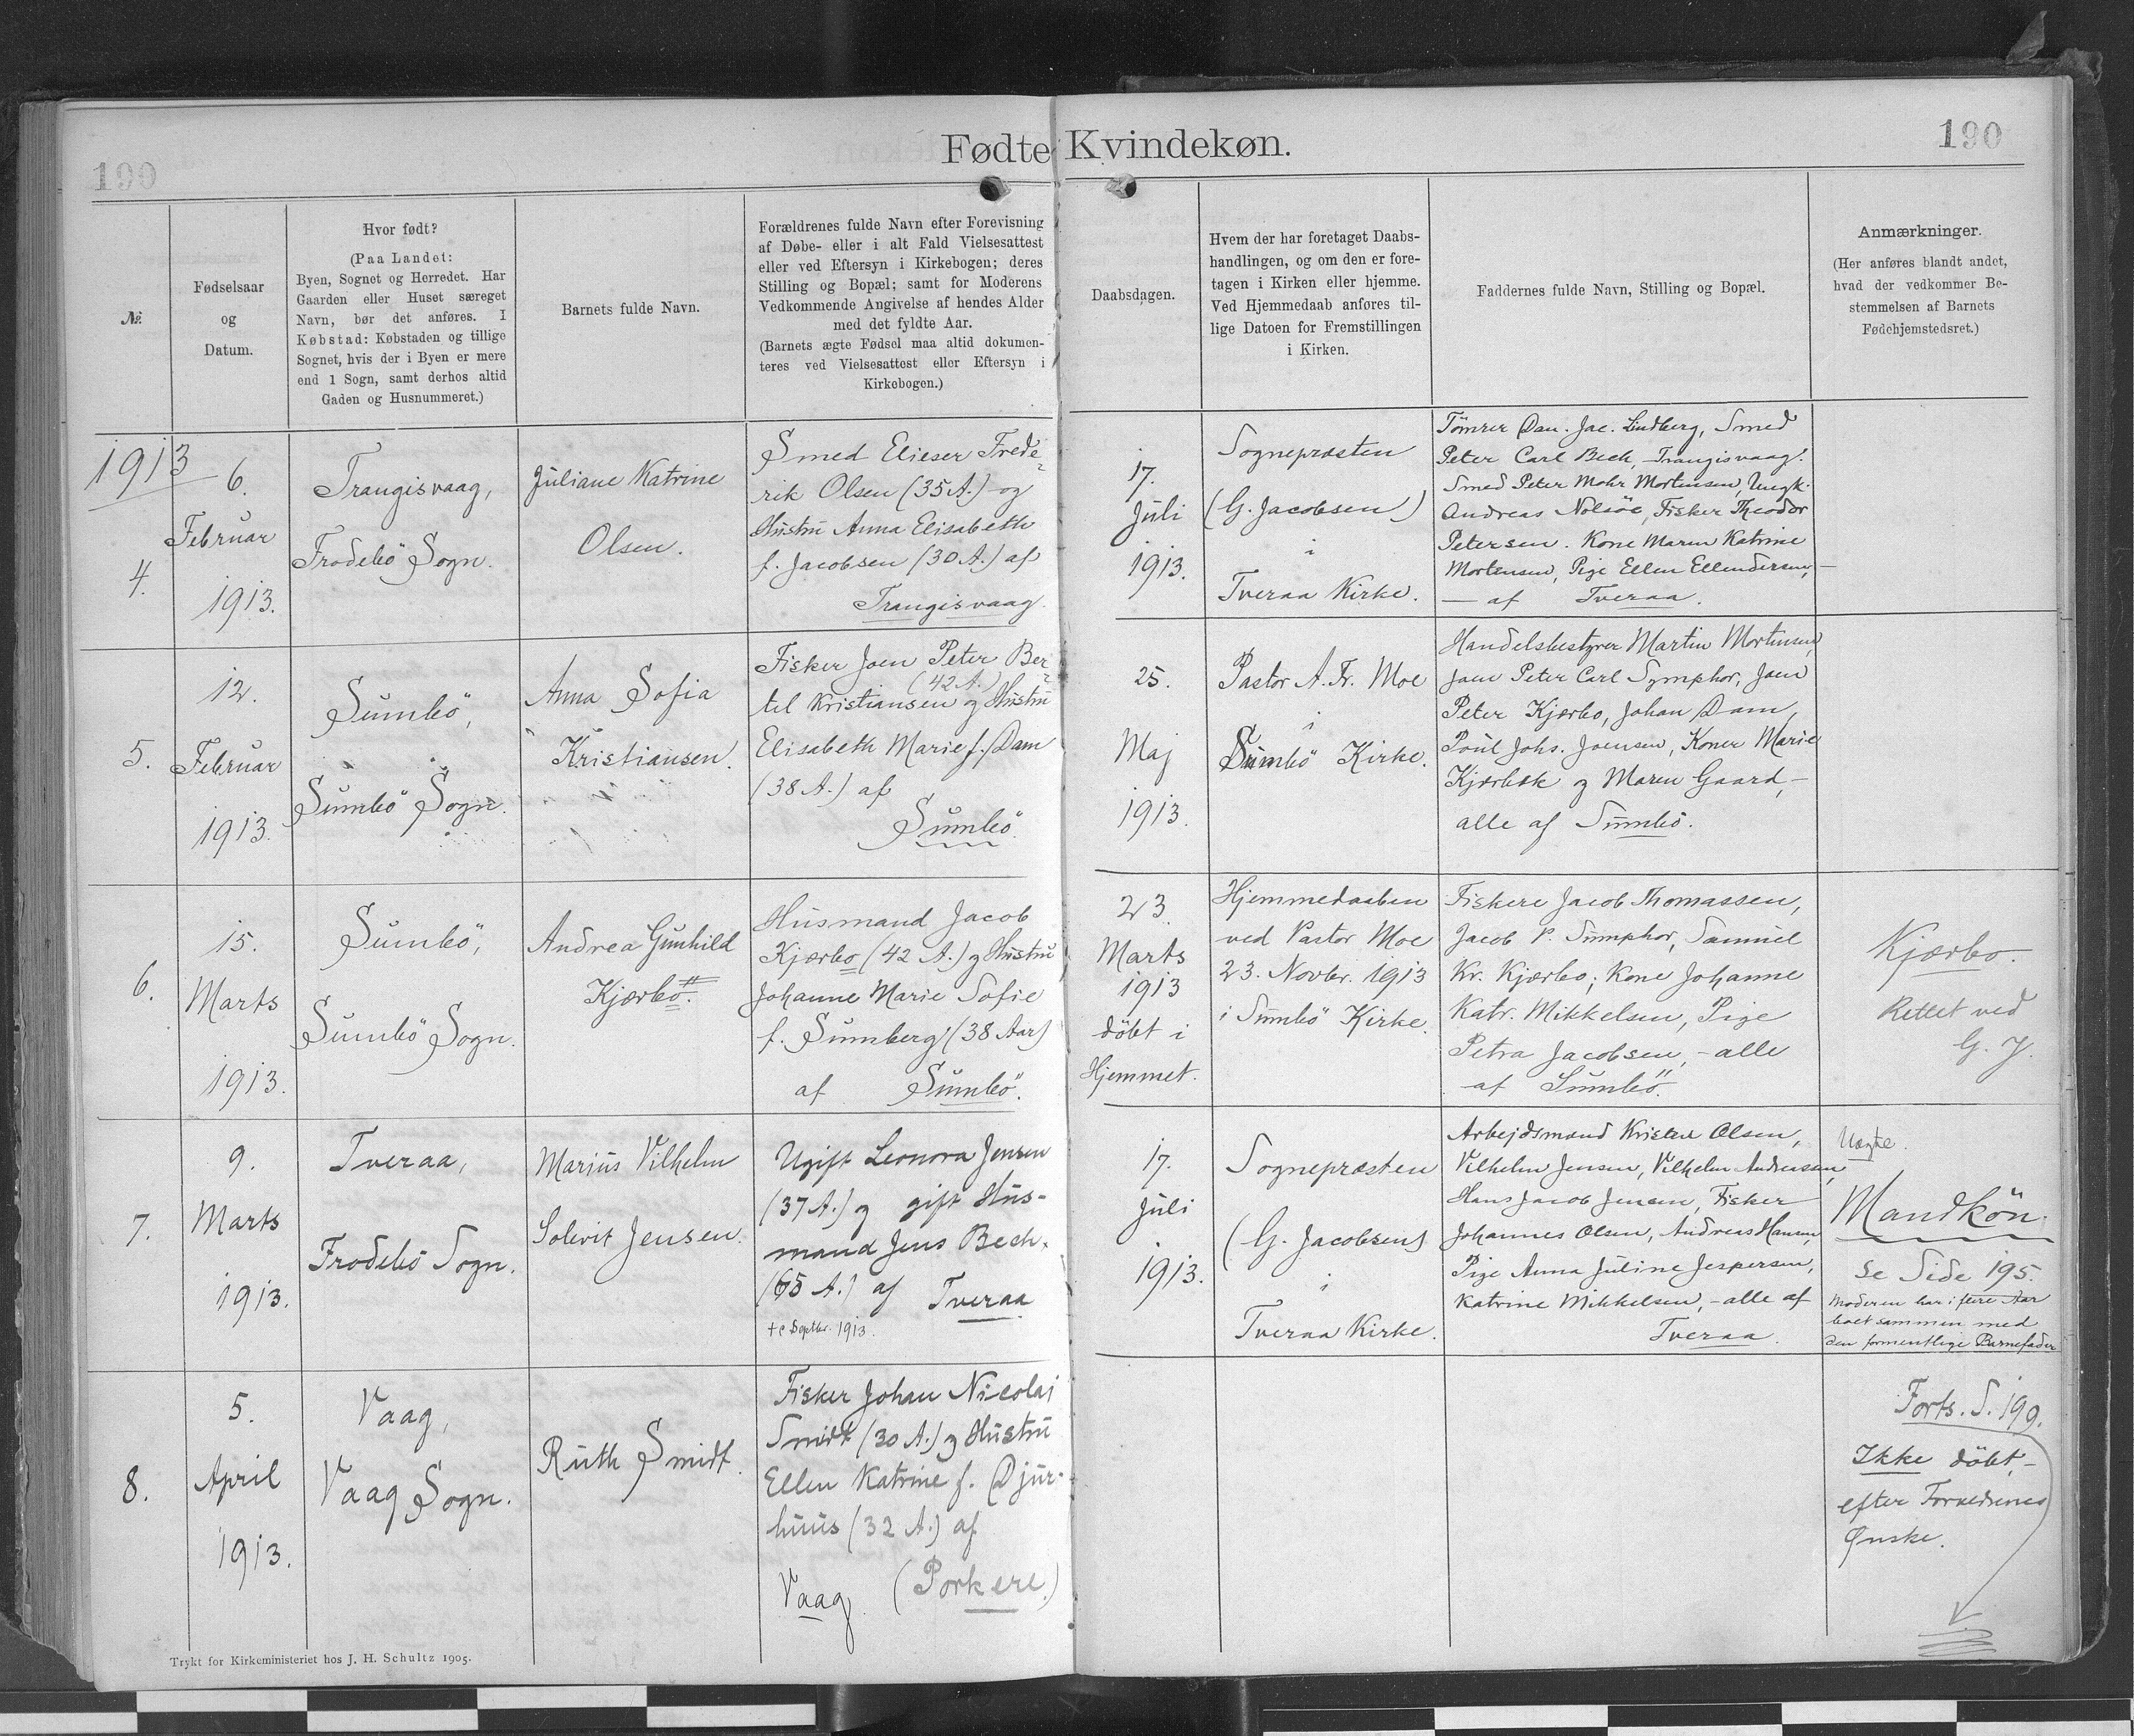 Fødte Kvindekøn.
190
190
№
Fødselsaar
og
Datum.
Hvor født?
(Paa Landet:
Byen, Sognet og Herredet. Har
Gaarden eller Huset særeget
Navn, bør det anføres. I
Købstad: Købstaden og tillige
Sognet, hvis der i Byen er mere
end 1 Sogn, samt derhos altid
Gaden og Husnummeret.)
Barnets fulde Navn.
Forældrenes fulde Navn efter Forevisning
af Døbe- eller i alt Fald Vielsesattest
eller ved Eftersyn i Kirkebogen; deres
Stilling og Bopæl; samt for Moderens
Vedkommende Angivelse af hendes Alder
med det fyldte Aar.
(Barnets ægte Fødsel maa altid dokumen-
teres ved Vielsesattest eller Eftersyn i
Kirkebogen.)
Daabsdagen.
Hvem der har foretaget Daabs-
handlingen, og om den er fore-
tagen i Kirken eller hjemme.
Ved Hjemmedaab anføres til-
lige Datoen for Fremstillingen
i Kirken.
Faddernes fulde Navn, Stilling og Bopæl.
Anmærkninger.
(Her anføres blandt andet,
hvad der vedkommer Be-
stemmelsen af Barnets
Fødehjemstedsret.)
1913
4.
6.
Februar
1913.
Trangisvaag,
Frodebö Sogn.
Juliane Katrine
Olsen.
Smed Elieser Frede-
rik Olsen (35 A.) og
Hustru Anna Elisabeth
f. Jacobsen (30 A.) af
Trangisvaag.
17.
Juli
1913.
Sognepræsten
(G. Jacobsen)
i
Tveraa Kirke.
Tømrer Dan. Jac. Lindberg, Smed
Peter Carl Bech, Trangisvaag.
Smed Peter Mohr Mortensen, Ungk.
Andreas Nolsöe, Fisker Theodor
Petersen. Kone Maren Katrine
Mortensen, Pige Ellen Ellendersen,
— af Tveraa.
5.
12.
Februar
1913.
Sumbö,
Sumbö Sogn.
Anna Sofia
Kristiansen.
Fisker Joen Peter Ber-
(42 A.)
tel Kristiansen og Hustru
Elisabeth Marie f. Dam
(38 A.) af
Sumbö.
25.
Maj
1913.
Pastor A. Fr. Moe
i
Sumbö Kirke.
Handelsbestyrer Martin Mortensen,
Joen Peter Carl Symphor, Joen
Peter Kjærbo, Johan Dam,
Poul Johs. Joensen, Koner Marie
Kjærbæk og Maren Gaard, —
alle af Sumbö.
6.
15.
Marts
1913.
Sumbö,
Sumbö Sogn.
Andrea Gunhild
Kjærbo.
Husmand Jacob
Kjærbo (42 A.) og Hustru
Johanne Marie Sofie
f. Sumberg (38 Aar)
af Sumbö.
23.
Marts
1913
döbt i
Hjemmet.
Hjemmedaaben
ved Pastor Moe
23. Novbr. 1913
i Sumbö Kirke.
Fiskere Jacob Thomassen,
Jacob P. Sumphor, Samuel
Kr. Kjærbo; Kone Johanne
Katr. Mikkelsen, Pige
Petra Jacobsen, — alle
af Sumbö.
Kjærbo.
Rettet ved
G. J.
7.
9.
Marts
1913.
Tveraa,
Frodebö Sogn.
Marius Vilhelm
Solevit Jensen.
Ugift Leonora Jensen
(37 A.) og gift Hus-
mand Jens Bech.
(65 A.) af Tveraa
Septbr. 1913.
17.
Juli
1913.
Sognepræsten
(G. Jacobsen)
i
Tveraa Kirke.
Arbejdsmand Kristen Olsen,
Vilhelm Jensen, Vilhelm Andreasen,
Hans Jacob Jensen, Fisker
Johannes Olsen, Andreas Hansen,
Pige Anna Juline Jespersen,
Katrine Mikkelsen, — alle af
Tveraa.
Uægte.
Mandkön.
Se Side 195.
Moderen har i flere Aar
boet sammen med
den formentlige Barnefader
8.
5.
April
1913.
Vaag,
Vaag Sogn.
Ruth Smidt.
Fisker Johan Nicolai
Smidt (30 A.) og Hustru
Ellen Katrine f. Djur-
huus (32 A.) af
Vaag. (Porkere.)
Forts. S. 199.
Ikke döbt, —
efter Forældrenes
Ønske.
Trykt for Kirkeministeriet hos J. H. Schultz 1905.